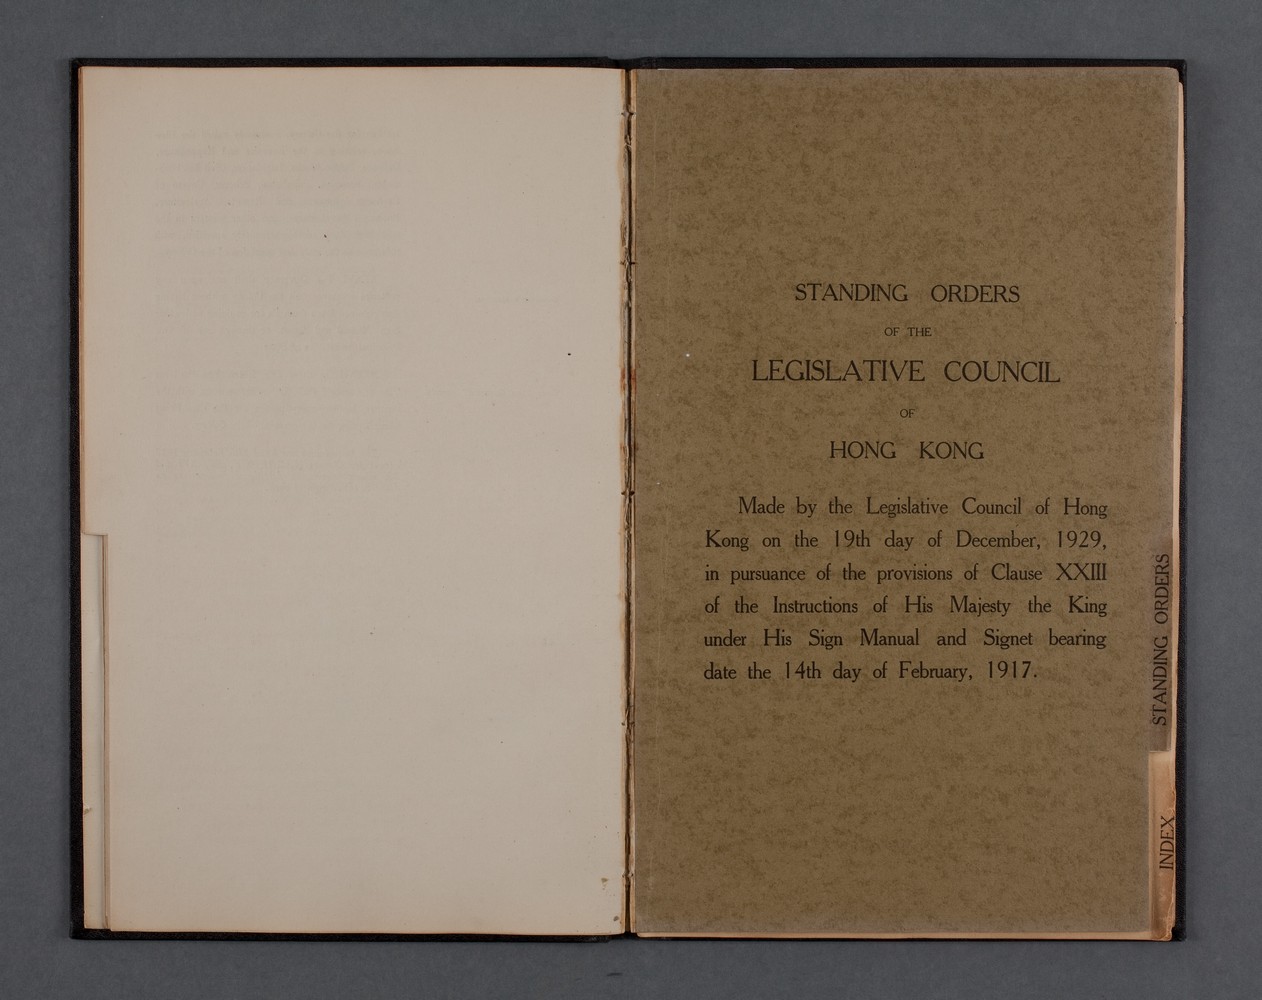 STANDING ORDERS
OF THE
LEGISLATIVE COUNCIL
OF
HONG KONG
Made by the Legislative Council of Hong
Kong on the 19th day of December, 1929,
in pursuance of the provisions of Clause XXIII
of the Instructions of His Majesty the King
under His Sign Manual and Signet bearing
date the 14th day of February, 1917.
STANDING ORDERS
INDEX